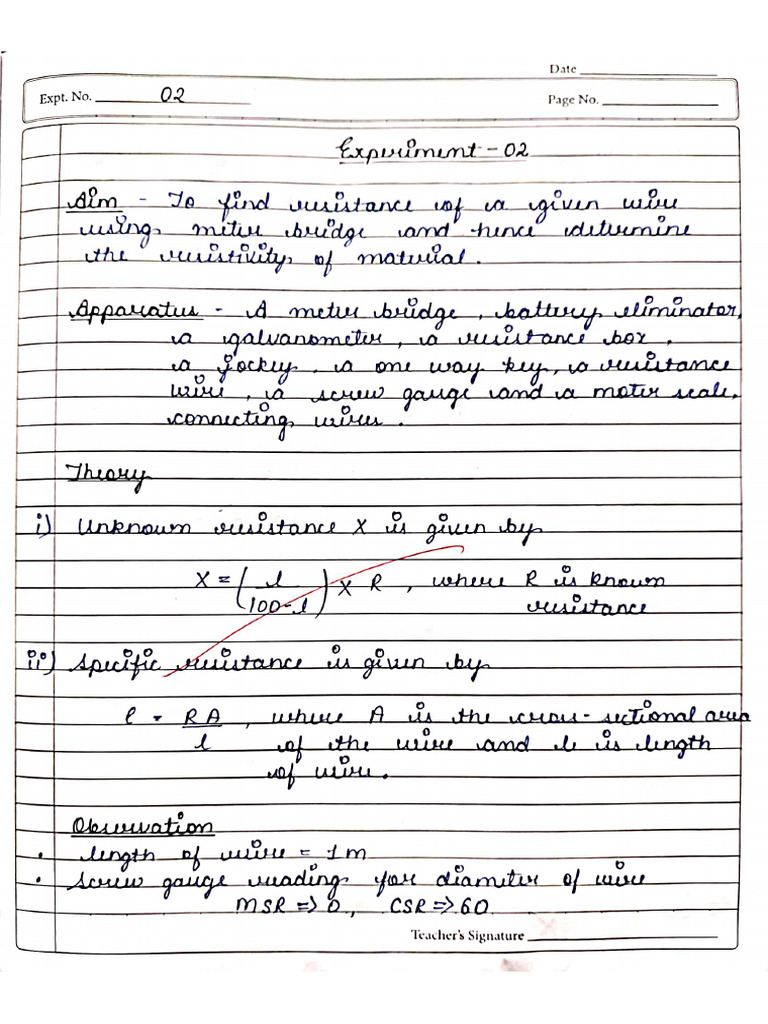 Date
Expt. No. 02
Page No.
Experiment - 02
Aim - To find resistance of a given wire
using meter bridge and hence determine
the resistivity of material.
Apparatus - A meter bridge, battery eliminator,
a galvanometer, a resistance box,
a jockey, a one way key, a resistance
wire, a screw gauge and a meter scale,
connecting wires.
Theory
i) Unknown resistance X is given by
X = (l / 100-l) X R, where R is known
resistance
ii) Specific resistance is given by
ρ = RA / l, where A is the cross-sectional area
of the wire and l is length
of wire.
Observation
• length of wire = 1m
• Screw gauge reading for diameter of wire
MSR => 0, CSR => 60
Teacher's Signature